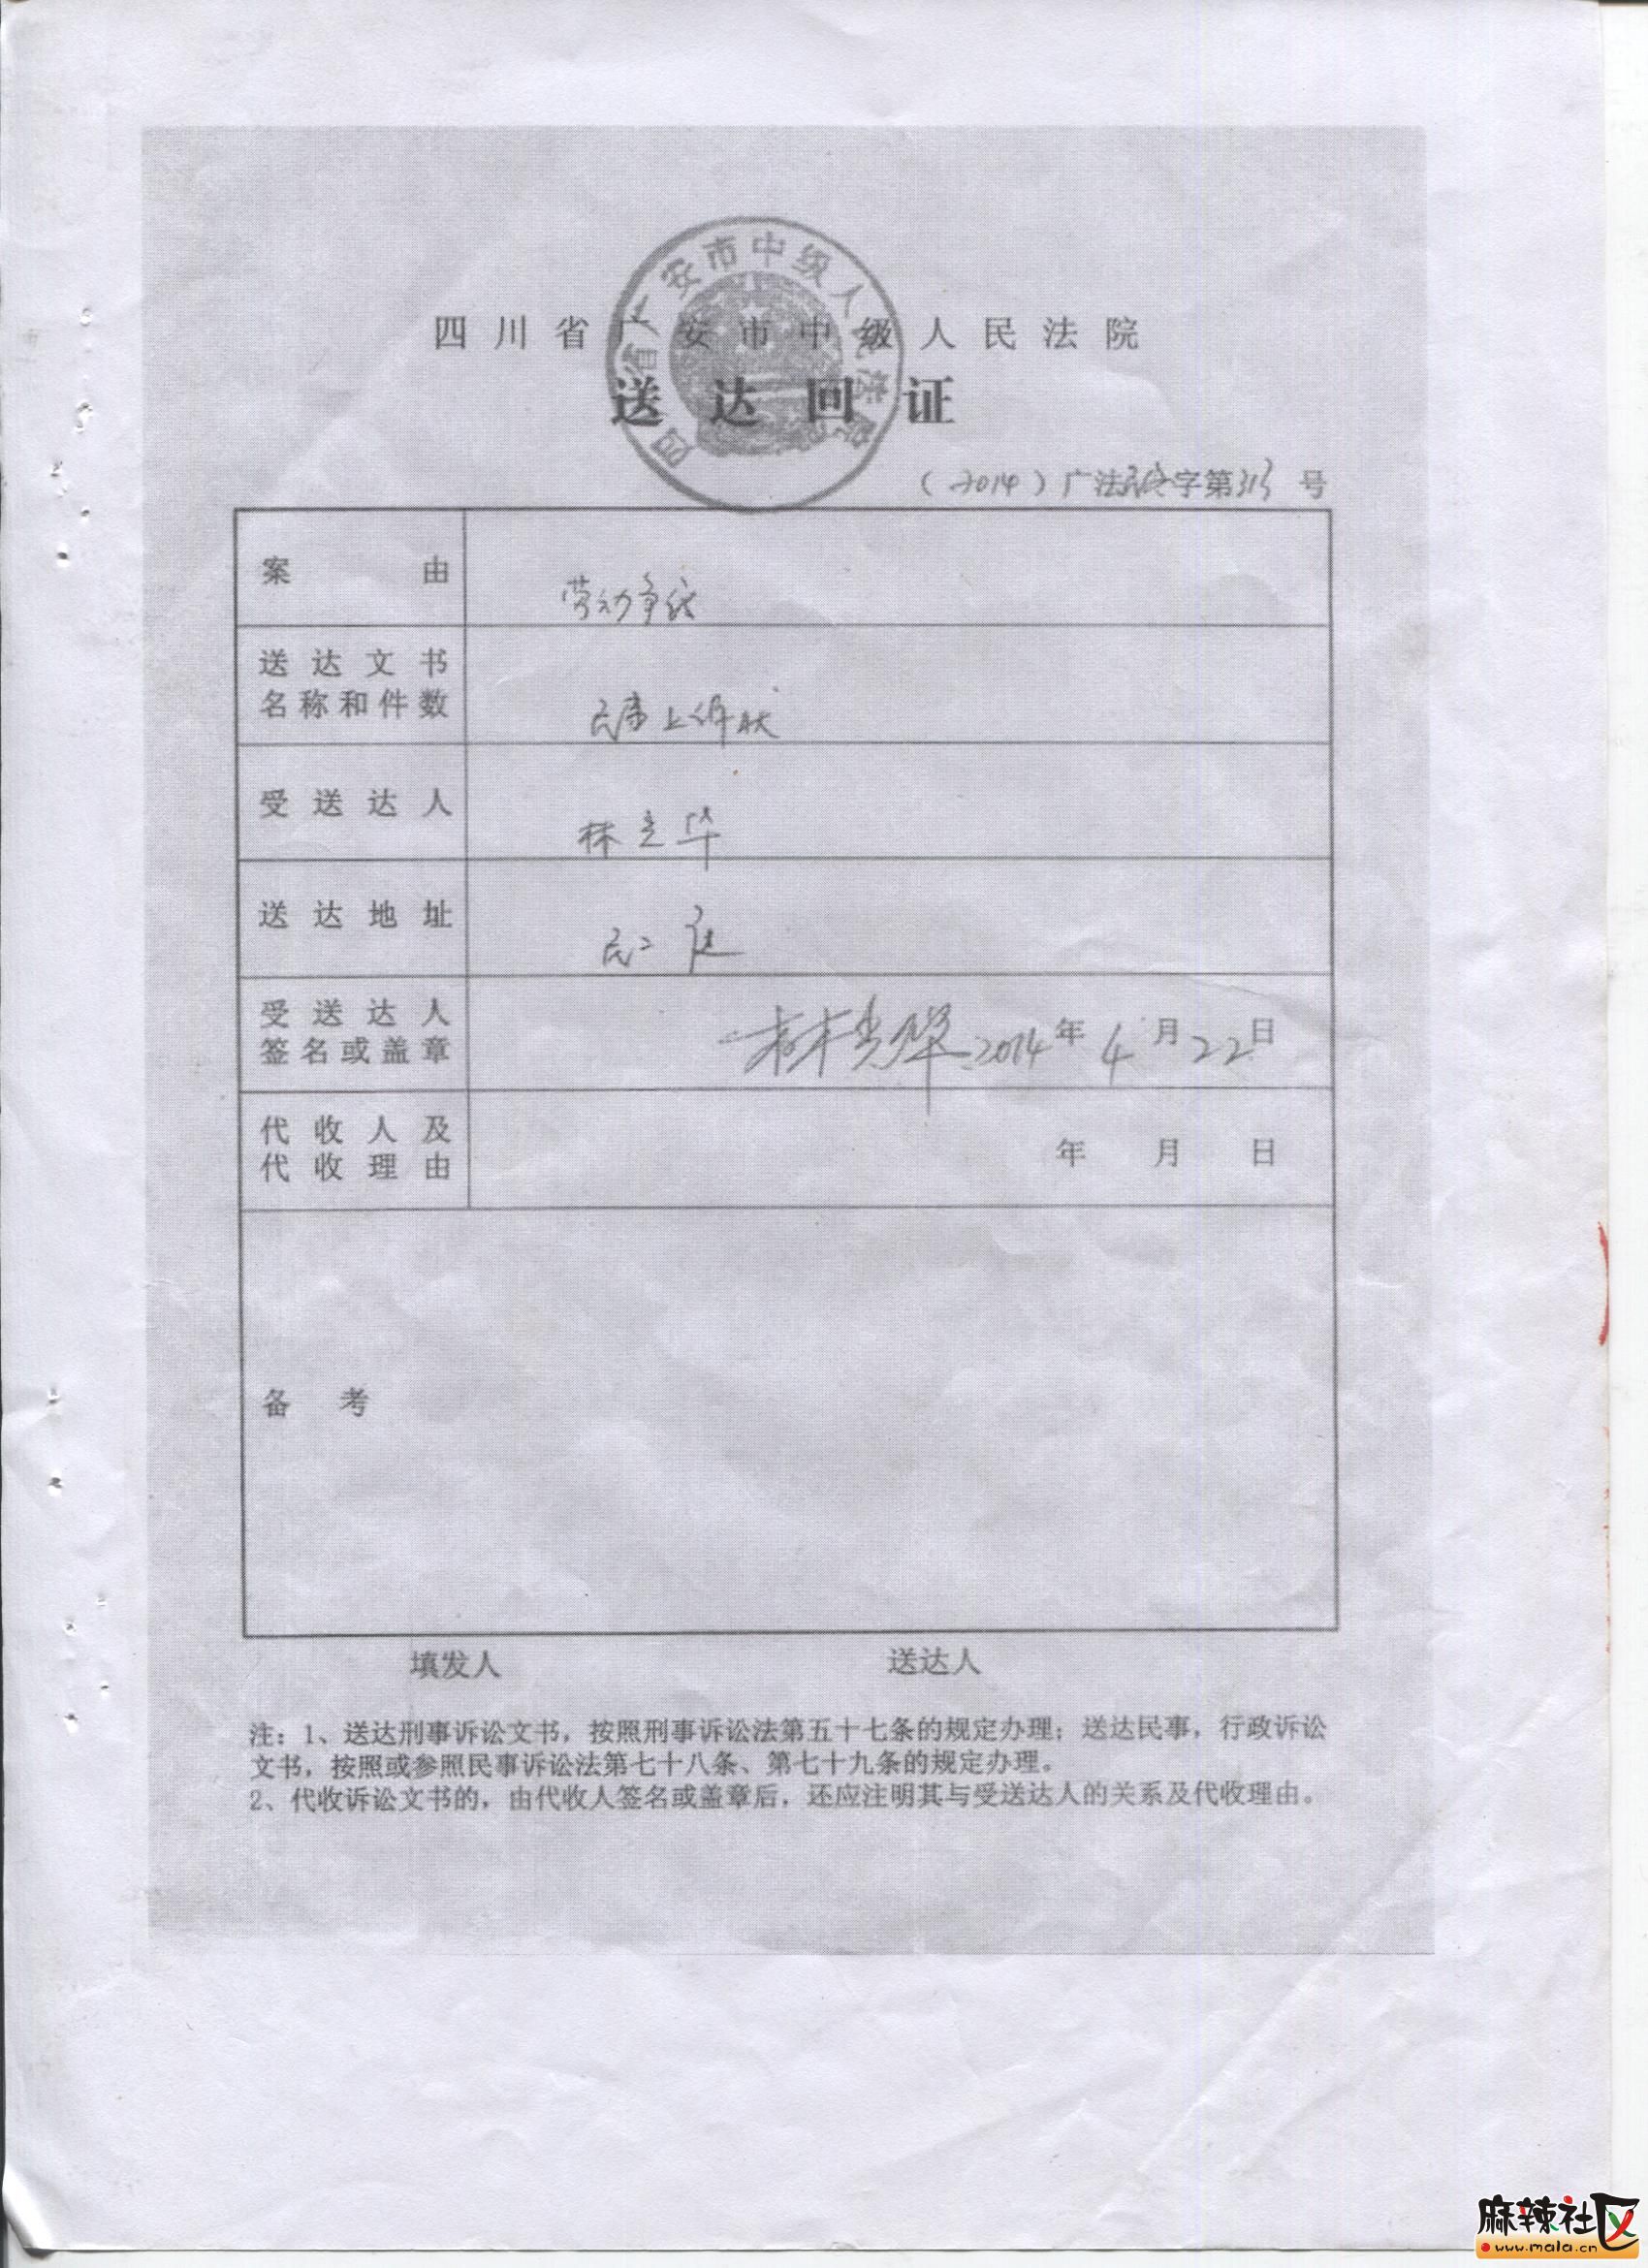 四川省广安市中级人民法院
四川省广安市中级人民法院
送达回证
（2014）广法民终字第313号
案由 劳动争议
送达文书
名称和件数 民事上诉状
受送达人 林立华
送达地址 民二庭
受送达人
签名或盖章 2014年4月22日
代收人及
代收理由 年 月 日
备考
填发人 送达人
注：1、送达刑事诉讼文书，按照刑事诉讼法第五十七条的规定办理；送达民事，行政诉讼
文书，按照或参照民事诉讼法第七十八条、第七十九条的规定办理。
2、代收诉讼文书的，由代收人签名或盖章后，还应注明其与受送达人的关系及代收理由。
麻辣社区
www.mala.cn